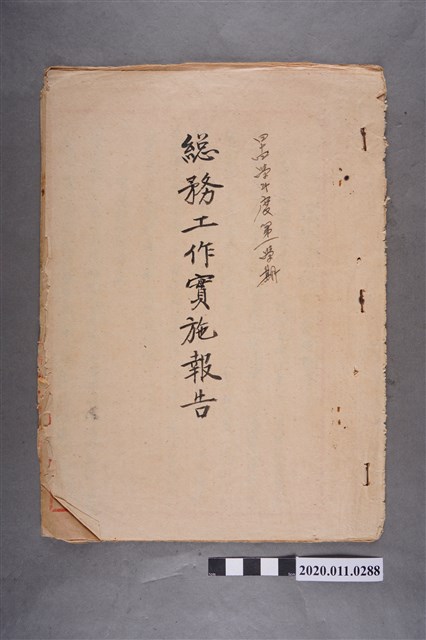 四十四學年度第一學期
総務工作實施報告
2020.011.0288